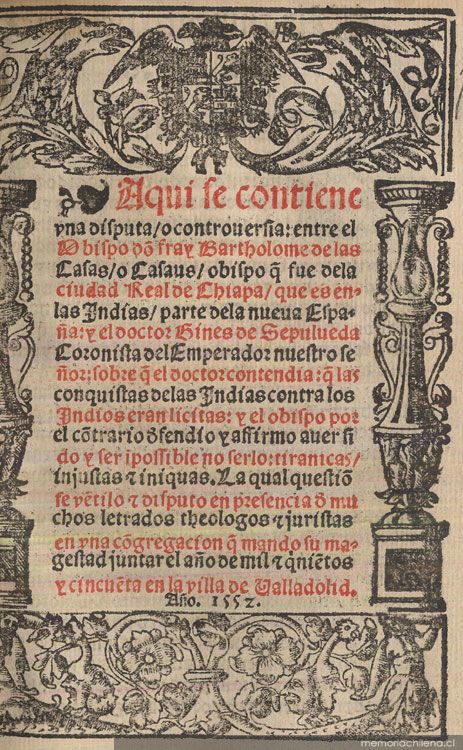 Aqui se contiene
vna disputa/o controuersia: entre el
Obispo dõ fray Bartholome de las
Casas/o Casaus/obispo q̃ fue dela
ciudad Real de Chiapa/que es en-
las Indias/parte dela nueua Espa-
ña: y el doctor Gines de Sepulueda
Coronista del Emperador nuestro se-
ñor: sobre q̃ el doctor contendia: q̃ las
conquistas delas Indias contra los
Indios eran licitas: y el obispo por
el cõtrario d̃fendio y affirmo auer si
do y ser ĩpossible no serlo: tiranicas/
injustas ⁊ iniquas. La qual questiõ
se vẽtilo ⁊ disputo en presencia d̃ mu
chos letrados theologos ⁊ juristas
en vna cõgregacion q̃ mando su ma-
gestad juntar el año de mil ⁊ q̃niẽtos
y cincuẽta en la villa de Valladolid.
Año. 1552.
memoriachilena.cl